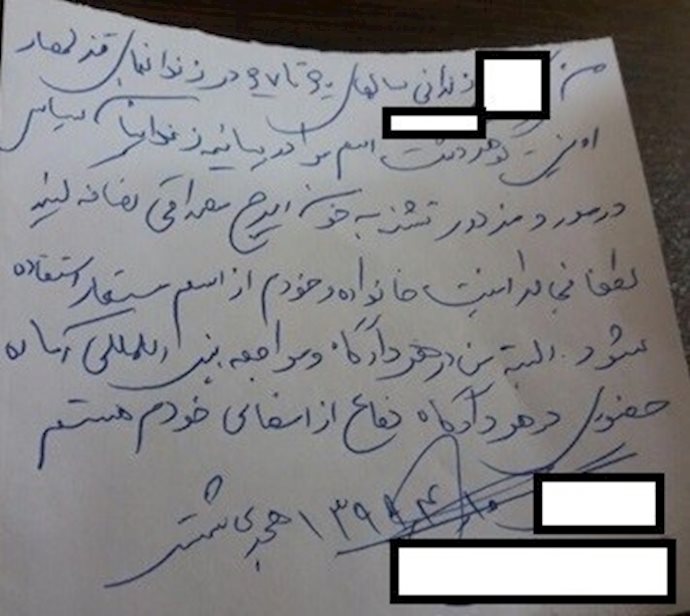 من زندانی سالهای ۶۰ تا ۶۷ در زندانهای قزلحصار
اوین گوهردشت اسم مرا در بیانیه زندانیان سیاسی
در مورد مزدور تشنه به خون ایرج مصداقی اضافه کنید
لطفا بخاطر امنیت خانواده و خودم از اسم مستعار استفاده
شود. البته من در هر دادگاه و مراجعه بین المللی آماده
حضور در هر دادگاه دفاع از امضای خودم هستم
۱۳۹۸ هجری شمسی